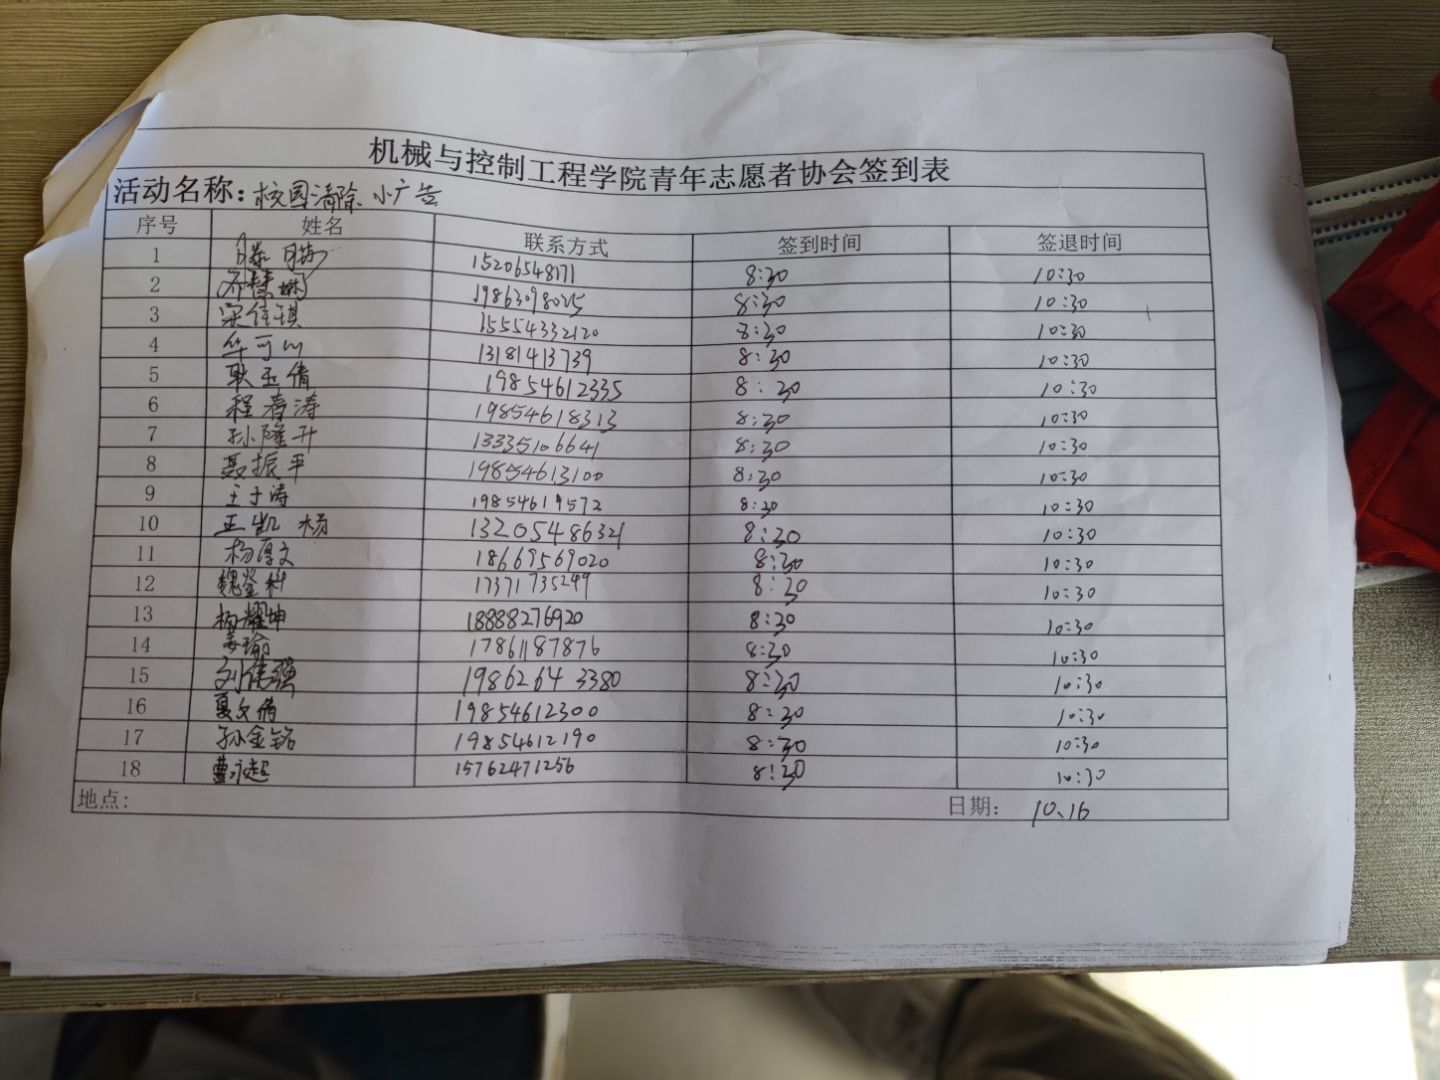 机械与控制工程学院青年志愿者协会签到表
活动名称：校园清除小广告
序号 姓名 联系方式 签到时间 签退时间
1 15206548171 8:30 10:30
2 齐慧琳 19863098025 8:30 10:30
3 宋佳琪 15554332120 8:30 10:30
4 华可心 13181413739 8:30 10:30
5 耿玉倩 19854612335 8:30 10:30
6 程春涛 19854618313 8:30 10:30
7 孙隆升 13335106641 8:30 10:30
8 聂振平 19854613100 8:30 10:30
9 王于涛 19854619572 8:30 10:30
10 王凯杨 13205486321 8:30 10:30
11 杨厚文 18669569020 8:30 10:30
12 魏登科 17371735249 8:30 10:30
13 杨耀坤 18888276920 8:30 10:30
14 姜瑜 17861187876 8:30 10:30
15 刘伟强 19862643380 8:30 10:30
16 夏文倩 19854612300 8:30 10:30
17 孙金铭 19854612190 8:30 10:30
18 曹永超 15762471256 8:30 10:30
地点: 日期: 10.16